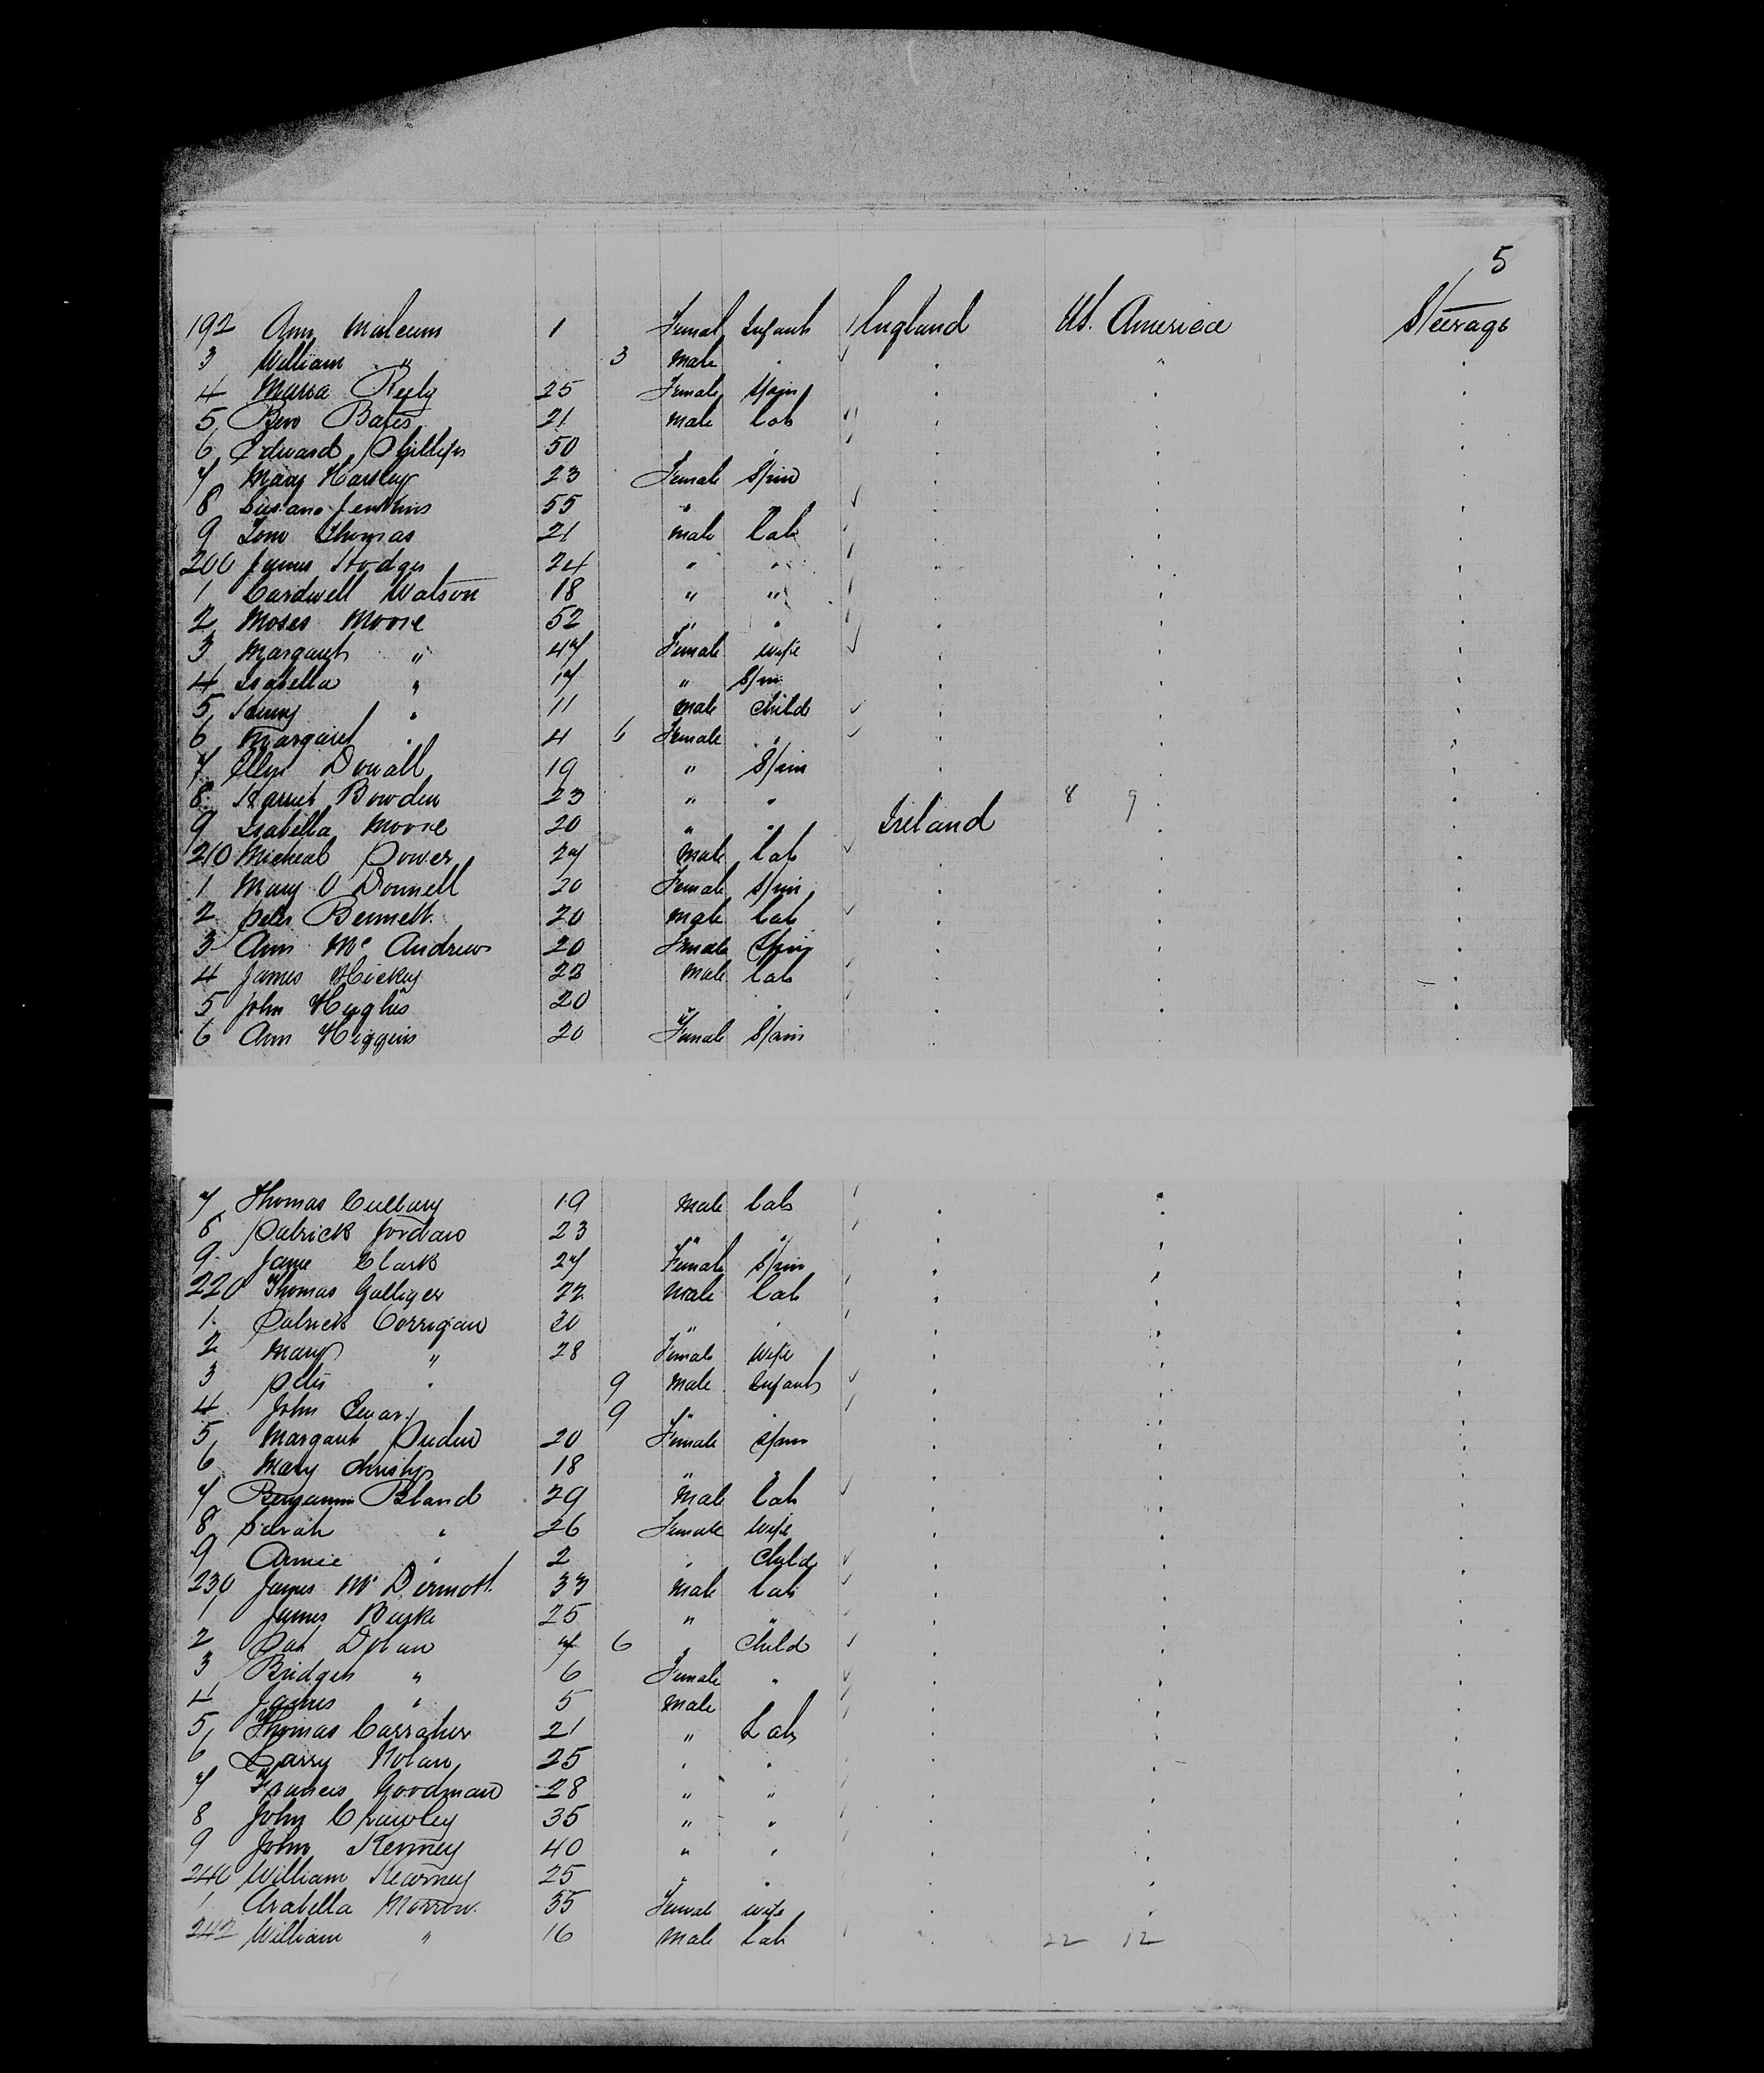 5
192 Ann Malcum 1 Femal Infant England Ut. America Steerage
3 William " 3 Male "
4 Maria Reily 25 Female Spin
5 Ben Bates 21 Male Lab
6 Edward Phillips 50 " "
7 Mary Hartley 23 Female Spin
8 Susana Jenkins 55 " "
9 Tom Thomas 21 Male Lab
200 James Hodges 24 " "
1 Cardwell Watson 18 " "
2 Moses Moore 52 " "
3 Margaret " 47 Female Wife
4 Isabella " 17 " Spin
5 " 11 Male Child
6 Margaret " 4 6 Female "
7 Ellen 19 " Spin
8 Harriet Bowden 23 " " 8 9
9 Isabella Moore 20 " " Ireland
210 Micheal Power 27 Male Lab
1 Mary O Donnell 20 Female Spin
2 Peter Bennett 20 Male Lab
3 Ann Mc Andrews 20 Female Spin
4 James Hickey 22 Male Lab
5 John Hughes 20 " "
6 Ann Higgins 20 Female Spin
7 Thomas 19 Male Lab
8 Patrick Jordan 23 " "
9 Jane Clark 27 Female Spin
220 Thomas Galliger 22 Male Lab
1 Patrick Corrigan 30 " "
2 Mary " 28 Female Wife
3 Peter " 9 Male Infant
4 John 9 " "
5 Margaret 20 Female Spin
6 Mary Christy 18 " "
7 Benjamin Bland 29 Male Lab
8 Sarah " 26 Female Wife
9 Annie " 2 " Child
230 James Mc Dermott 33 Male Lab
1 James Burke 25 " "
2 Pat Dolan 7 6 " Child
3 Bridget " 6 Female "
4 James " 5 Male
5 Thomas Carraher 21 " Lab
6 Larry Nolan 25 " "
7 Francis Goodman 28 " "
8 John Crawley 35 " "
9 John Kenney 40 " "
240 William Kearney 25 " "
1 Arabella Morrow 35 Female Wife
242 William " 16 Male Lab 22 12